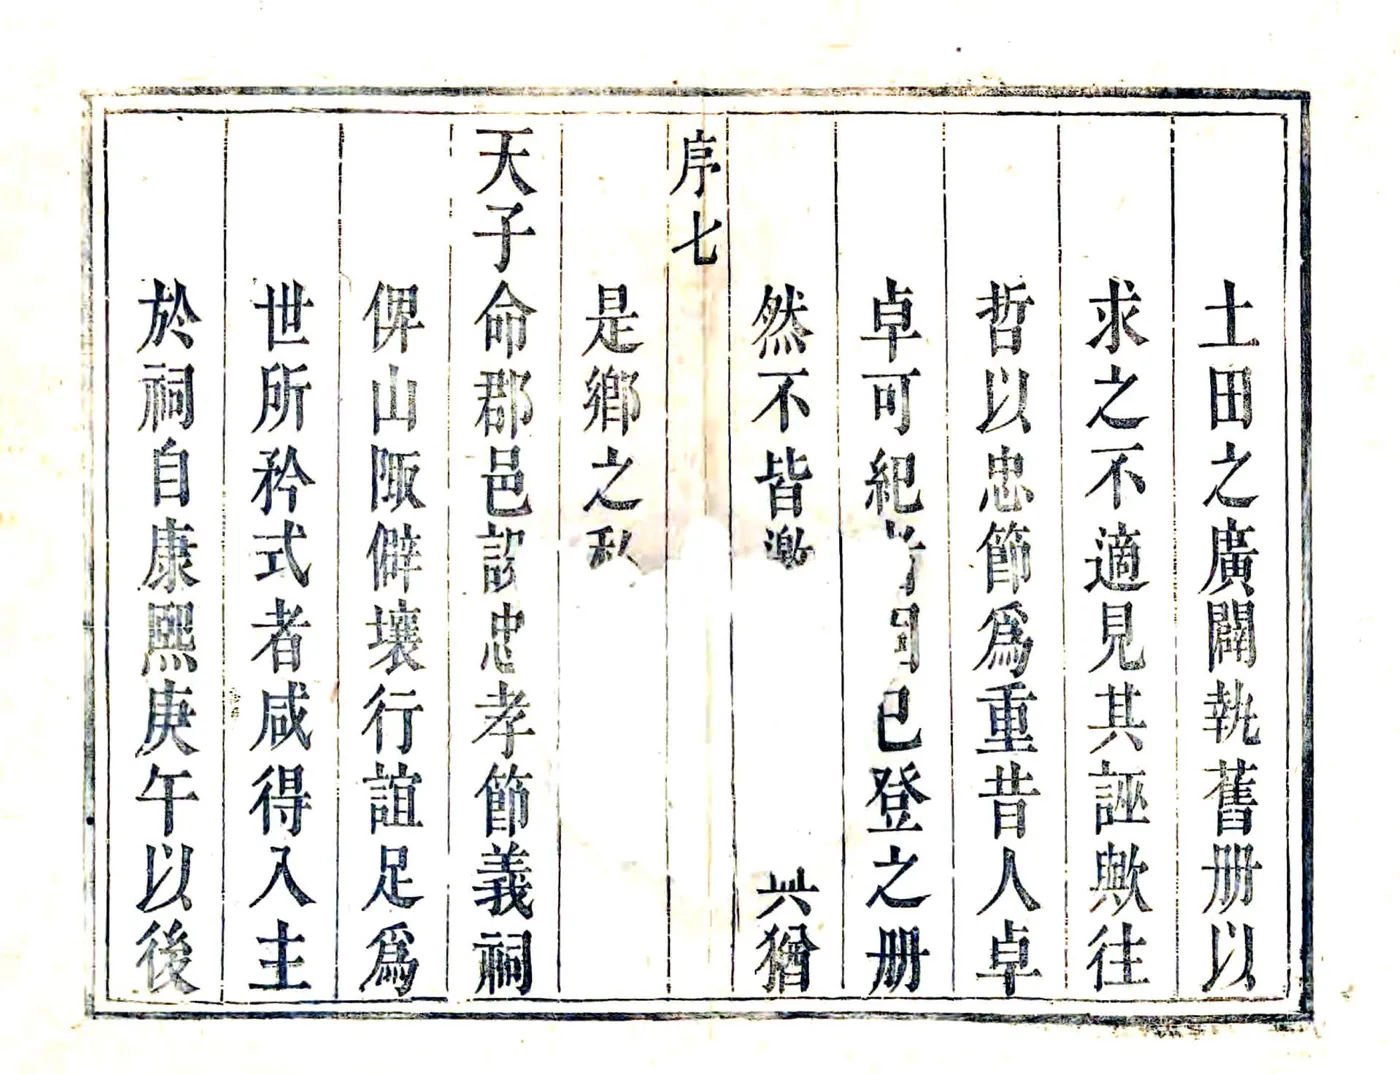 土田之廣闢執舊册以
求之不適見其誣歟往
哲以忠節為重昔人卓
卓可紀者固已登之册
然不皆激猶
序七
是鄉之私
天子命郡邑設忠孝節義祠
俾山陬僻壤行誼足為
世所矜式者咸得入主
於祠自康熙庚午以後